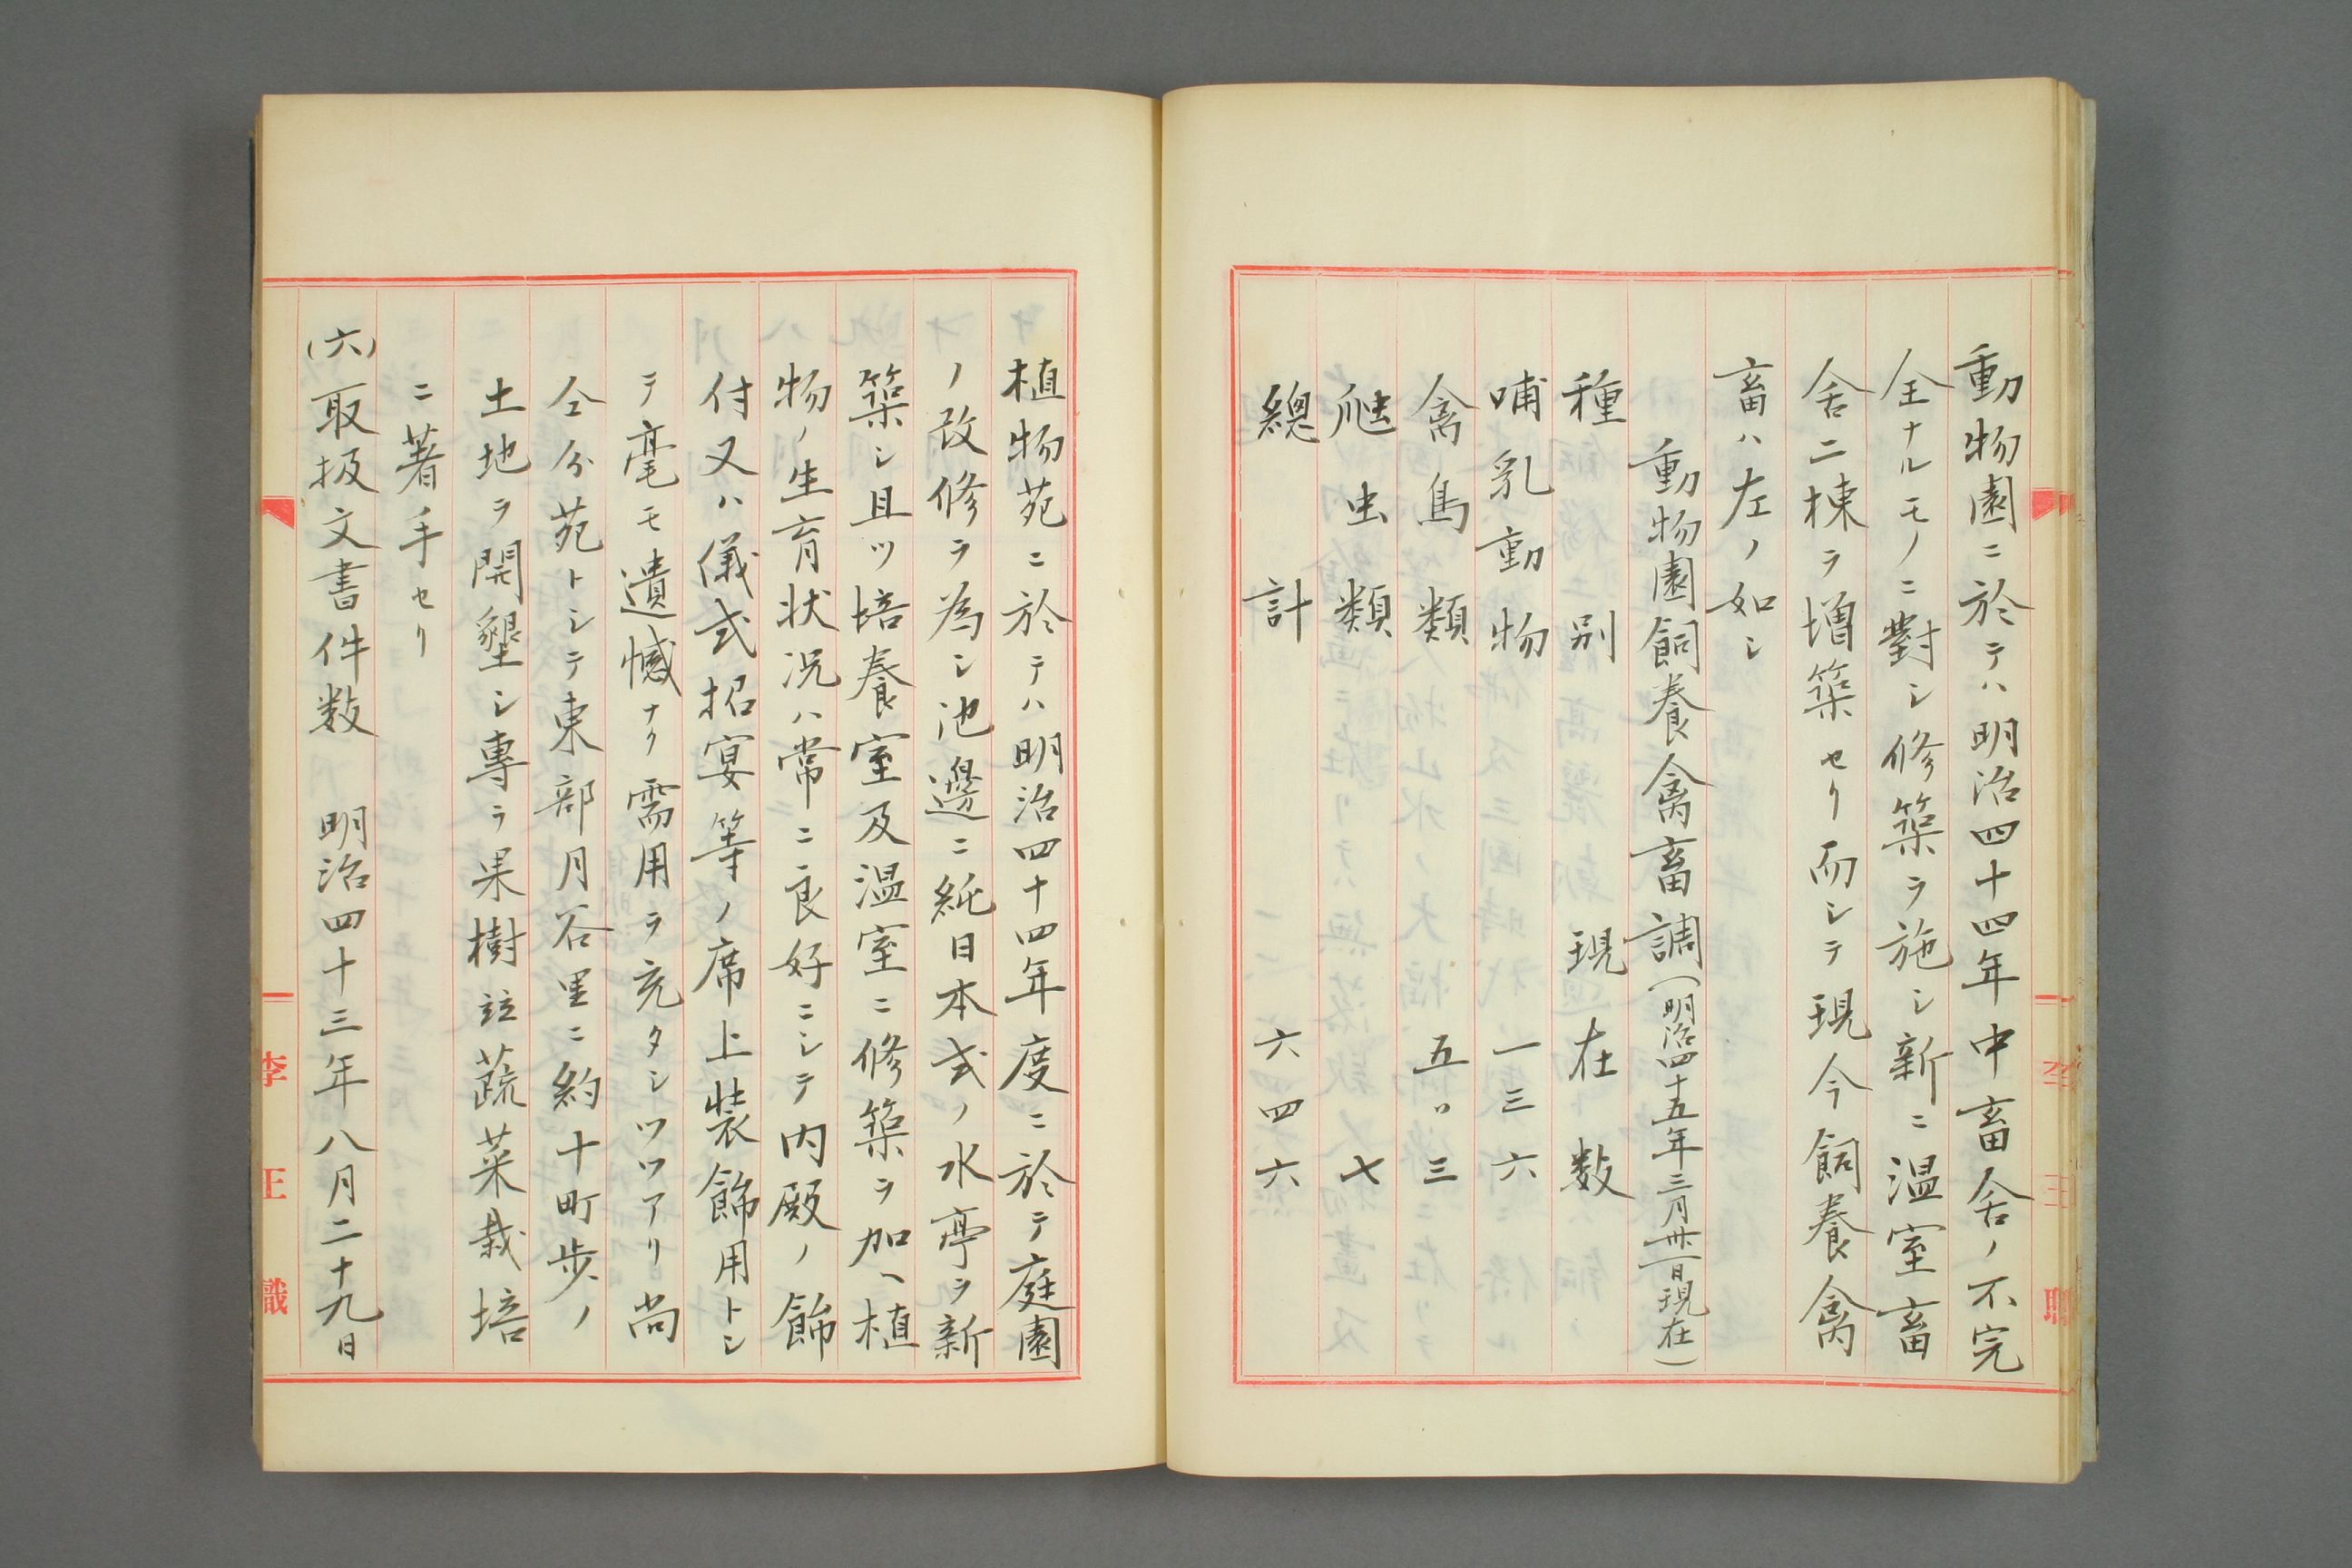 動物園ニ於テハ明治四十四年中畜舎ノ不完
全ナルモノニ對シ修築ヲ施シ新ニ温室畜
舎二棟ヲ増築セリ而シテ現今飼養禽
畜ハ左ノ如シ
動物園飼養禽畜調(明治四十五年三月卅一日現在)
種別 現在数
哺乳動物 一三六
禽鳥類 五〇三
爬虫類 七
總計 六四六
植物苑ニ於テハ明治四十四年度ニ於テ庭園
ノ改修ヲ為シ池邊ニ純日本式ノ水亭ヲ新
築シ且ツ培養室及温室ニ修築ヲ加ヘ植
物ノ生育状況ハ常ニ良好ニシテ内殿ノ飾
付又ハ儀式招宴等ノ席上装飾用トシ
テ毫モ遺憾ナク需用ヲ充タシツツアリ尚
仝分苑トシテ東部月谷里ニ約十町歩ノ
土地ヲ開墾シ專ラ果樹竝蔬菜栽培
ニ著手セリ
(六)取扱文書件数 明治四十三年八月二十九日
李王職